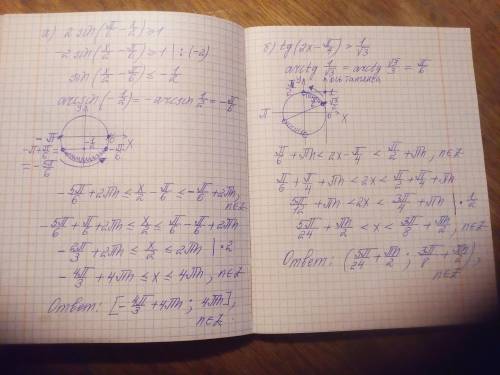 а) 2 sin(π/6 - x/2) ≥ 1
-2 sin(x/2 - π/6) ≥ 1 | : (-2)
sin(x/2 - π/6) ≤ -1/2
arcsin(-1/2) = -arcsin 1/2 = -π/6
y
-π
-1/2
0
x
-π+π/6
-π/6
= -5π/6
-5π/6 + 2πn ≤ x/2 - π/6 ≤ -π/6 + 2πn, n∈Z
-5π/6 + π/6 + 2πn ≤ x/2 ≤ π/6 - π/6 + 2πn
-2π/3 + 2πn ≤ x/2 ≤ 2πn | · 2
-4π/3 + 4πn ≤ x ≤ 4πn, n∈Z
Ответ: [-4π/3 + 4πn; 4πn], n∈Z.
б) tg(2x - π/4) > 1/√3
arctg 1/√3 = arctg √3/3 = π/6
ось тангенса
π
x
π/6 + πn < 2x - π/4 < π/2 + πn, n∈Z
π/6 + π/4 + πn < 2x < π/2 + π/4 + πn
5π/12 + πn < 2x < 3π/4 + πn | · 1/2
5π/24 + πn/2 < x < 3π/8 + πn/2, n∈Z
Ответ: (5π/24 + πn/2; 3π/8 + πn/2), n∈Z